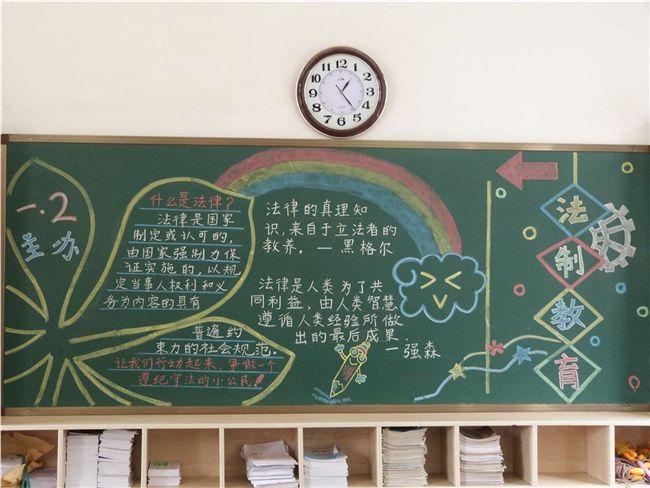 12
1
2
3
4
5
6
7
8
9
10
11
一.2
主办
什么是法律？
法律是国家
制定或认可的，
由国家强制力保
证实施的，以规
定当事人权利和义
务为内容的具有
普遍约
束力的社会规范。
让我们行动起来，争做一个
遵纪守法的小公民！
法律的真理知
识，来自于立法者的
教养。—黑格尔
法律是人类为了共
同利益，由人类智慧
遵循人类经验所做
出的最后成果
—强森
法
制
教
育